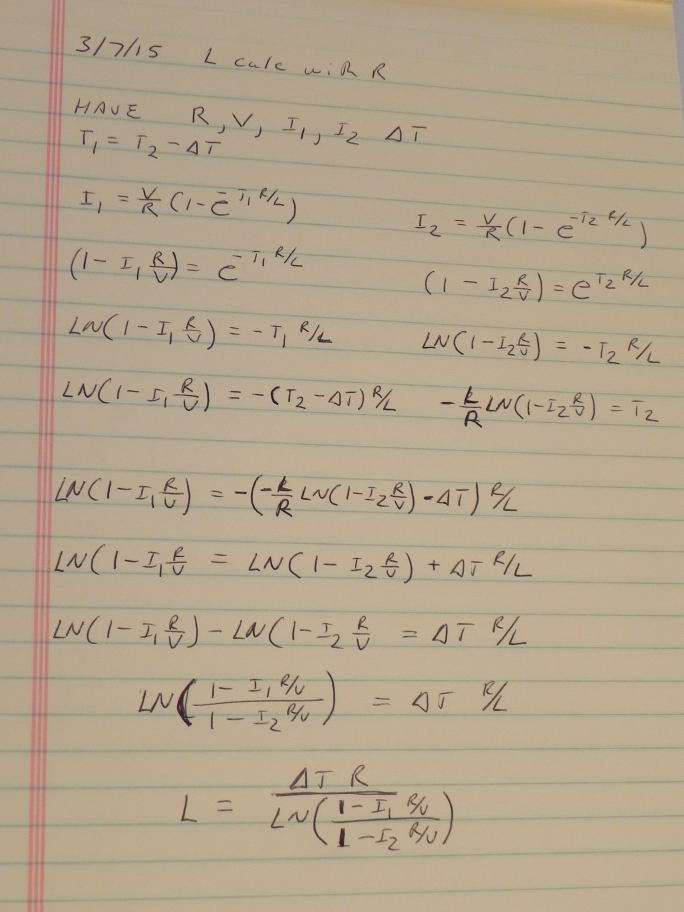 3/7/15 L calc with R
HAVE R, V, I₁, I₂ ΔT
T₁ = T₂ - ΔT
I₁ = V/R (1 - e^-T₁ R/L)
I₂ = V/R (1 - e^-T₂ R/L)
(1 - I₁ R/V) = e^-T₁ R/L
(1 - I₂ R/V) = e^T₂ R/L
LN(1 - I₁ R/V) = -T₁ R/L
LN(1 - I₂ R/V) = -T₂ R/L
LN(1 - I₁ R/V) = -(T₂ - ΔT) R/L
-L/R LN(1 - I₂ R/V) = T₂
LN(1 - I₁ R/V) = -(-L/R LN(1 - I₂ R/V) - ΔT) R/L
LN(1 - I₁ R/V = LN(1 - I₂ R/V) + ΔT R/L
LN(1 - I₁ R/V) - LN(1 - I₂ R/V = ΔT R/L
LN((1 - I₁ R/V)/(1 - I₂ R/V)) = ΔT R/L
L = ΔT R / LN((1 - I₁ R/V)/(1 - I₂ R/V))